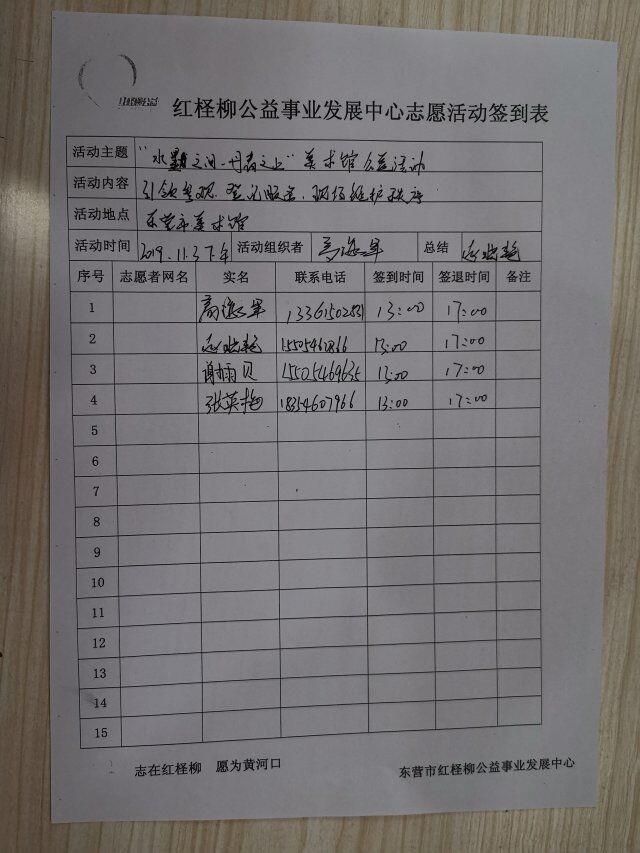 红柽柳公益
红柽柳公益事业发展中心志愿活动签到表
活动主题 "水墨之间-丹青之上"美术馆公益活动
活动内容 引领参观、登记服务、现场维护秩序
活动地点 东营市美术馆
活动时间 2019.11.3下午 活动组织者 高海军 总结
序号 志愿者网名 实名 联系电话 签到时间 签退时间 备注
1 高海军 13361502831 13:00 17:00
2 13:00 17:00
3 15505469635 13:00 17:00
4 张英梅 18354607966 13:00 17:00
5
6
7
8
9
10
11
12
13
14
15
志在红柽柳 愿为黄河口 东营市红柽柳公益事业发展中心